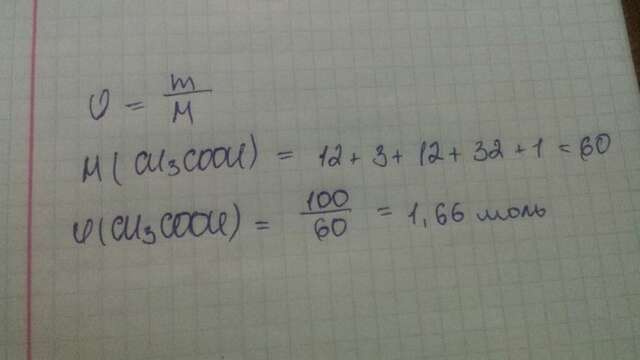 υ = m/M
M(CH₃COOH) = 12+3+12+32+1=60
υ(CH₃COOH) = 100/60 = 1,66 моль